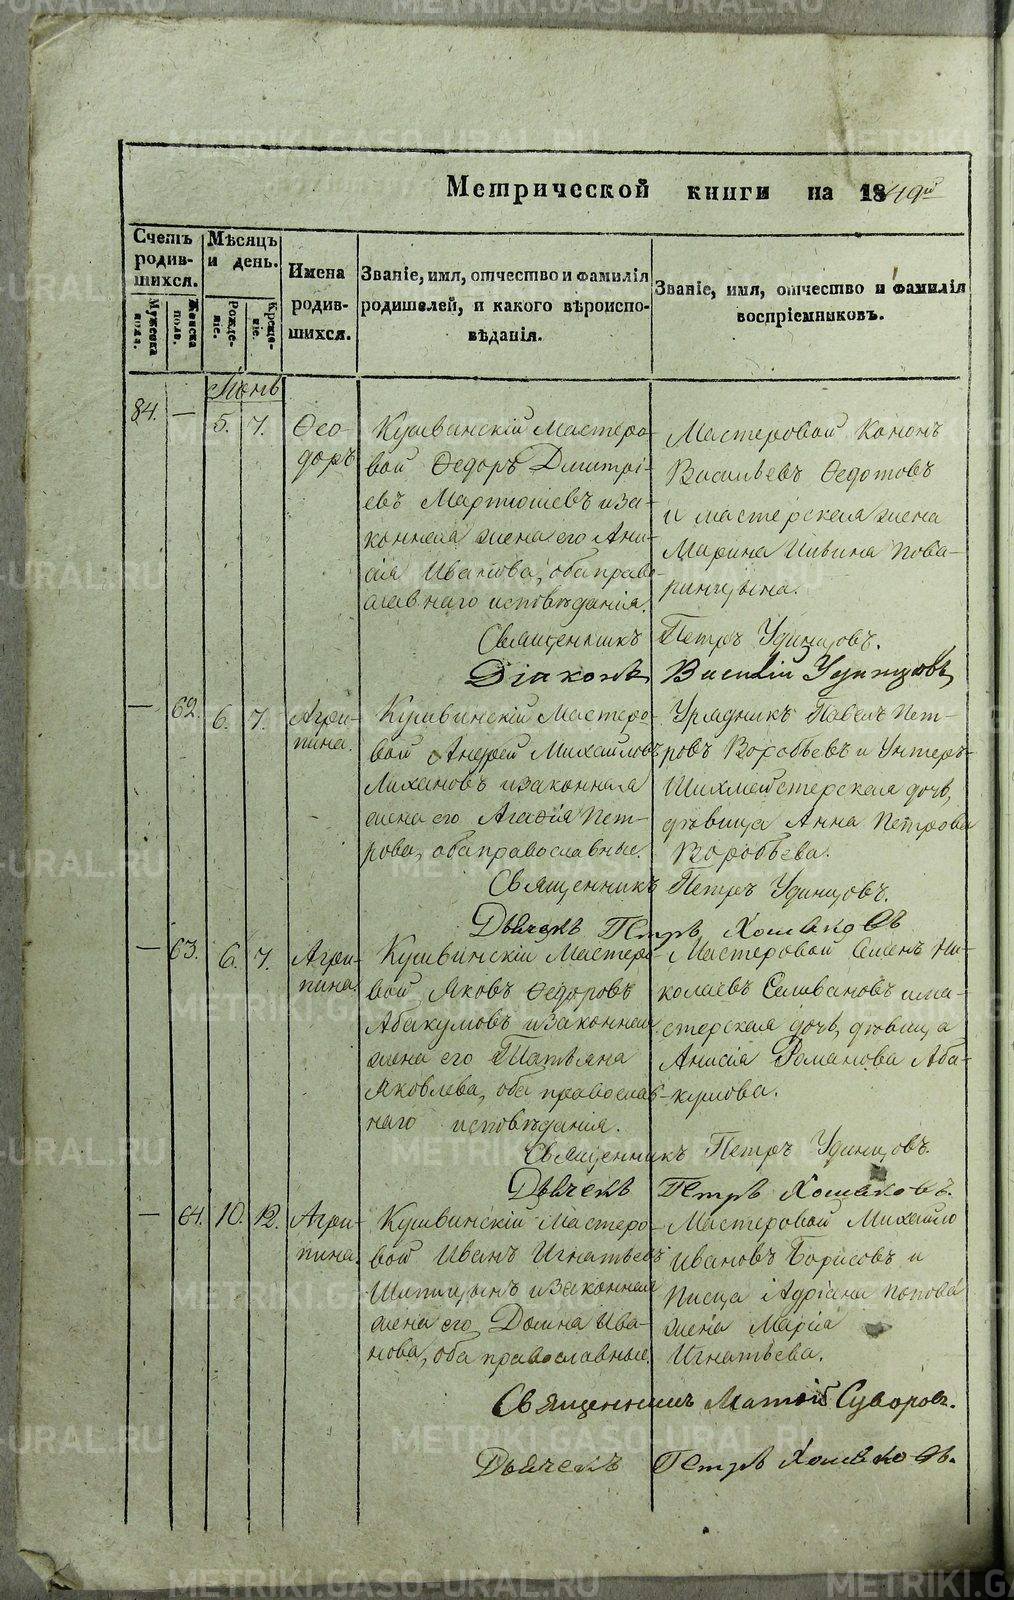 Метрической книги на 1849й
Счетъ родив-шихся.
Мужеска пола.
Женска пола.
Мѣсяцъ и день.
Рожде-ніе.
Креще-ніе.
Имена родив-шихся.
Званіе, имя, отчество и фамилія
родителей, и какого вѣроиспо-
вѣданія.
Званіе, имя, отчество и фамилія
воспріемниковъ.
Іюнь
84. — 5. 7. Ѳео-
доръ
Кушвинскій Мастеро-
вой Ѳедоръ Дмитрі-
евъ Мартюшевъ и за-
конная жена его Ани-
сія Иванова, оба право-
славнаго исповѣданія.
Мастеровой Кононъ
Васильевъ Ѳедотовъ
и мастерская жена
Марина
Священникъ Петръ Удинцовъ.
Діаконъ Василій Удинцовъ
— 62. 6. 7. Агри-
пина.
Кушвинскій Мастеро-
вой Андрей Михайловъ
Лихановъ и законная
жена его Агафія Пет-
рова, оба православные.
Урядникъ Павелъ Пет-
ровъ Воробьевъ и Унтеръ-
Шихмейстерская дочь,
дѣвица Анна Петрова
Воробьева.
Священникъ Петръ Удинцовъ.
Дьячекъ Петръ Хомяковъ
— 63. 6. 7. Агри-
пина
Кушвинскій Мастеро-
вой Яковъ Ѳедоровъ
Абакумовъ и законная
жена его Татьяна
Яковлева, оба православ-
наго исповѣданія.
Мастеровой Семенъ Ни-
колаевъ Селивановъ и ма-
стерская дочь, дѣвица
Анисія Романова Аба-
кумова.
Священникъ Петръ Удинцовъ.
Дьячекъ Петръ Хомяковъ.
— 64. 10. 12. Агри-
пина.
Кушвинскій Мастеро-
вой Иванъ Игнатьевъ
и законная
жена его Домна Ива-
нова, оба православные.
Мастеровой Михайло
Ивановъ Борисовъ и
Писца Адріана Попова
жена Марія
Игнатьева.
Священникъ Матѳій Суворовъ.
Дьячекъ Петръ Хомяковъ.
METRIKI.GASO-URAL.RU